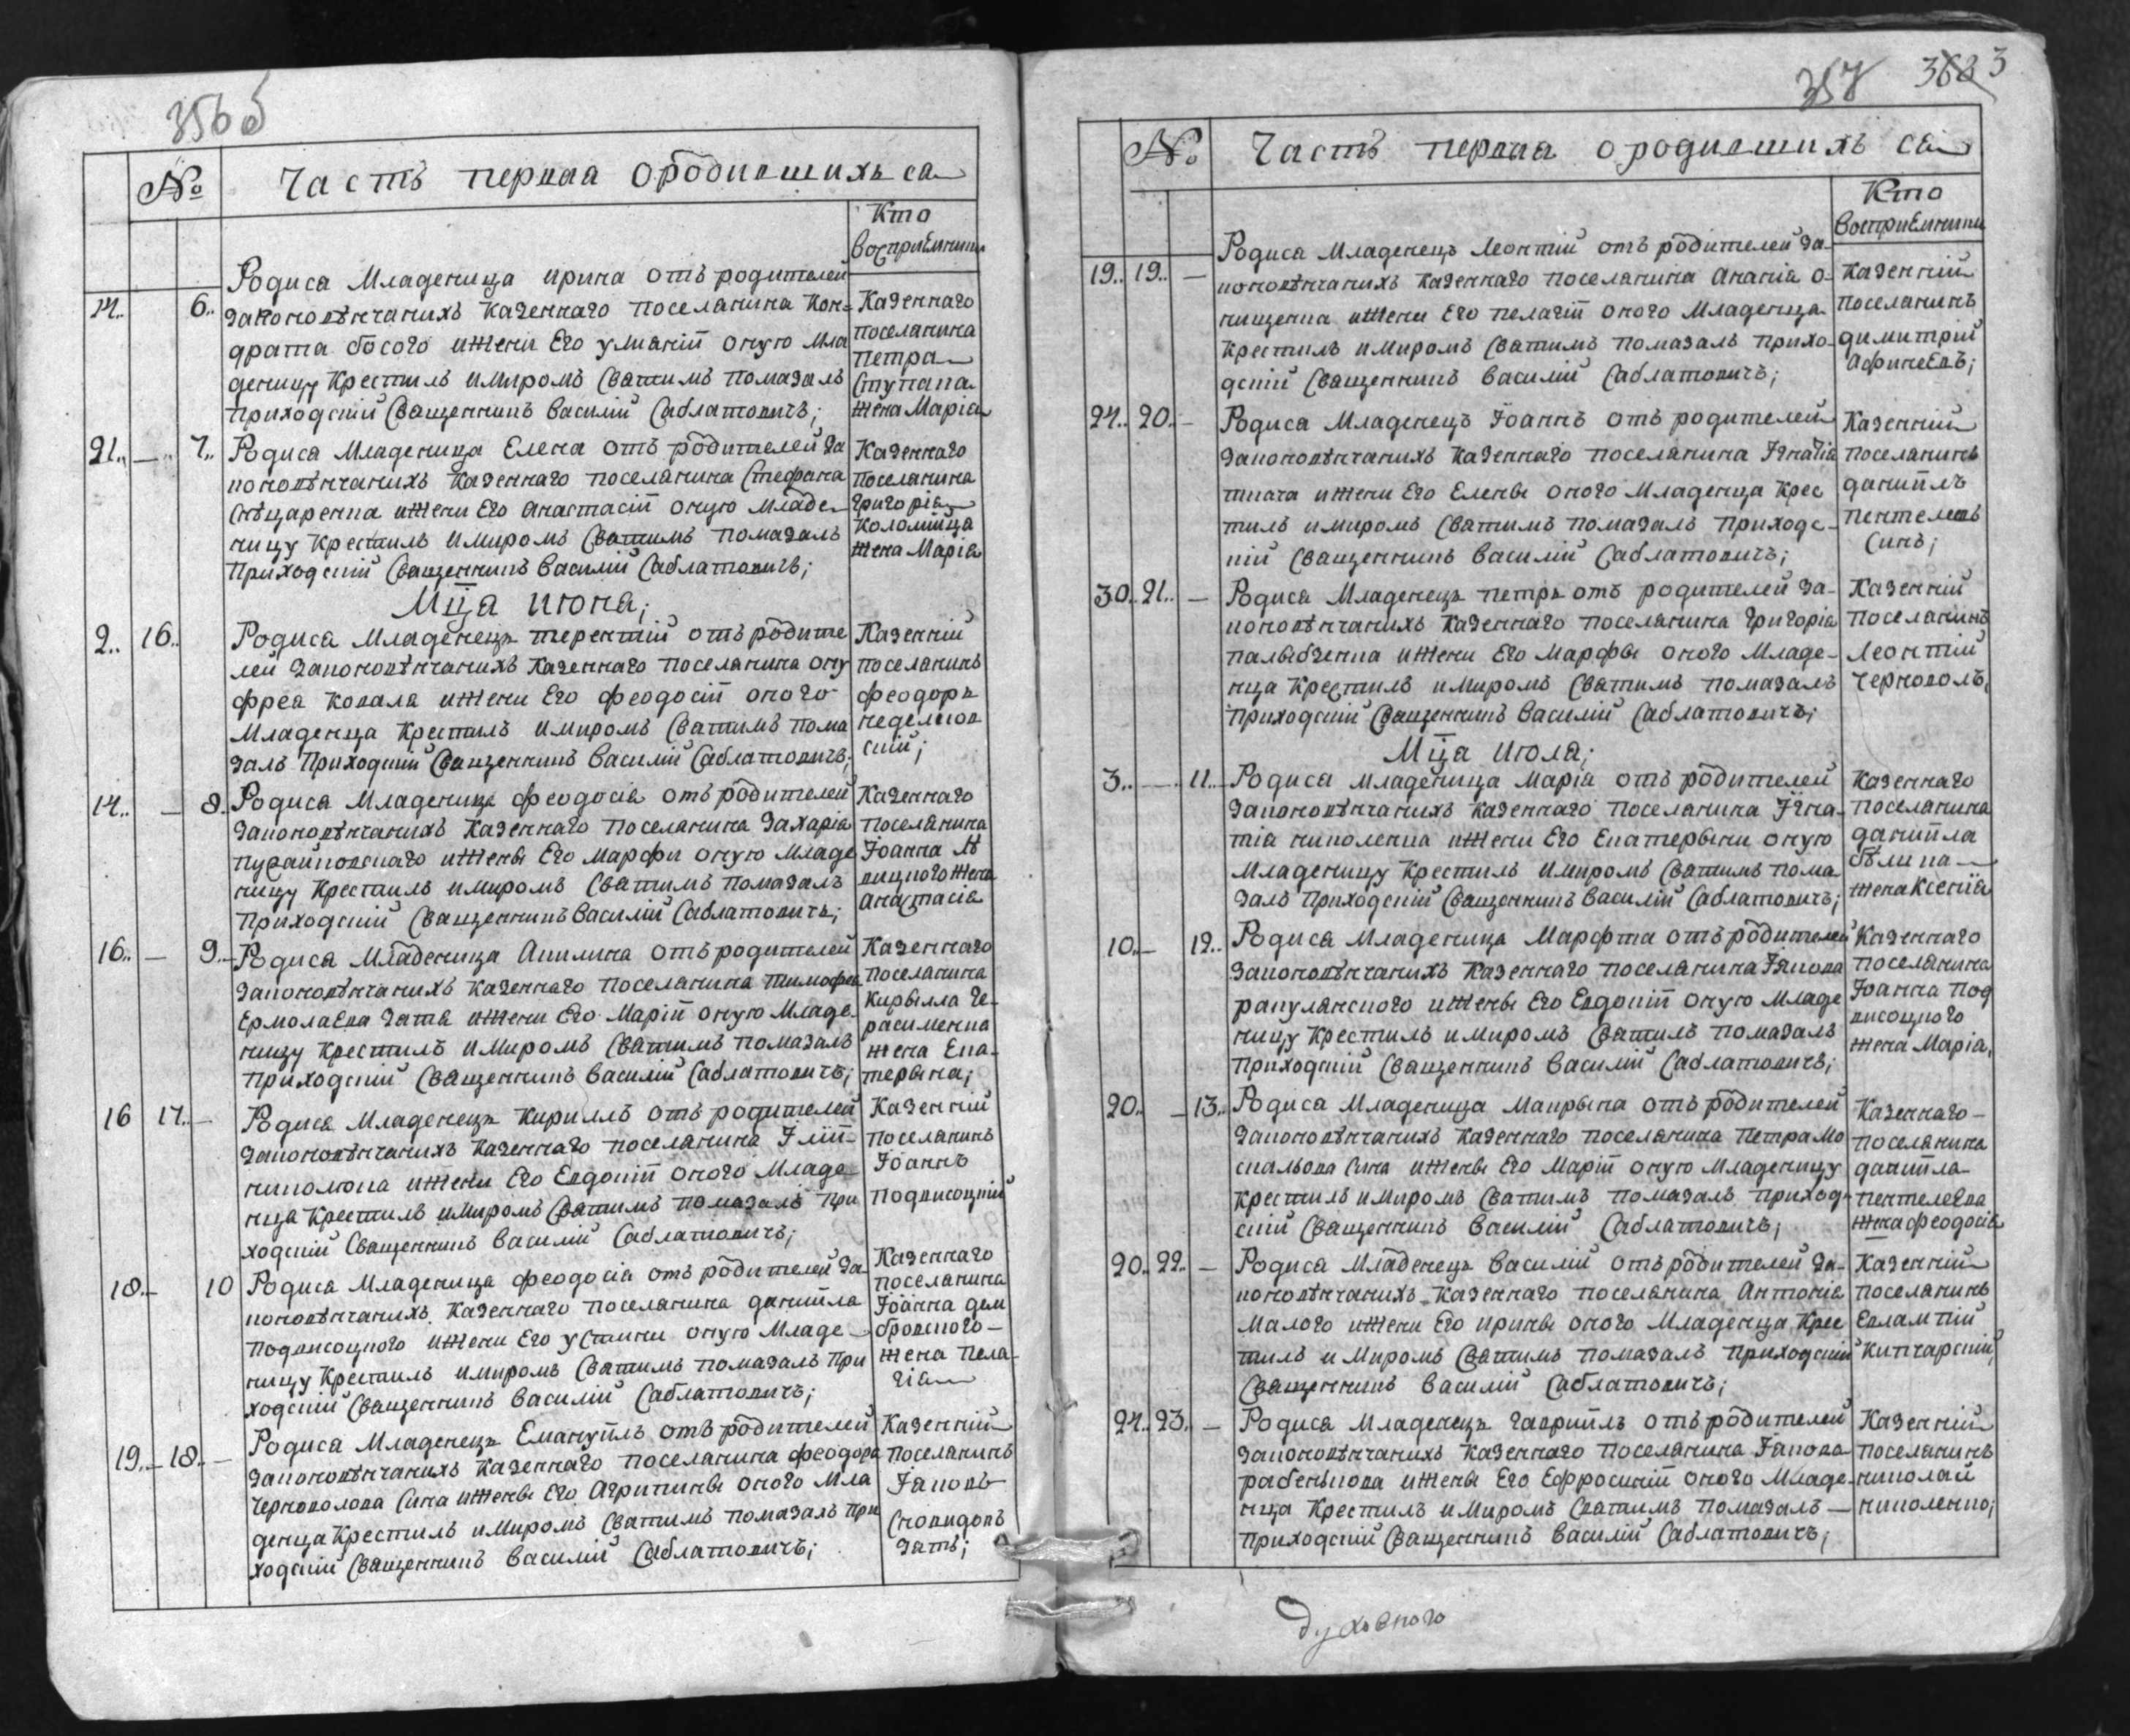 356 б
№ Часть первая ородившихъ ся
Кто
воспріемники
Родися Младеница ирина отъ родителей
14.. 6..
законовѣнчанихъ Казенного поселянина Кон=
драта босого ижени Его улиянїи оную мла
деницу Крестилъ имиромъ Святимъ помазалъ
приходскїй Священникъ василїй Саблатовичъ;
Казенного
поселянина
петра
Ступака
жена Марія
21.. — 7..
Родися Младеница Елена отъ родителей за
коновѣнчанихъ Казенного поселянина Стефана
Снѣцаренка ижени Его анастасїи оную младе
ницу Крестилъ имиромъ Святимъ помазалъ
приходскїй Священникъ василїй Саблатовичъ;
Казенного
поселянина
григорія
коломійца
жена Марія
Мц҃а июня;
2.. 16..
Родися младенецъ терентій отъ родите
лей законовѣнчанихъ казенного поселянина ону
фрея коваля ижени Его феодосїи оного
младенца Крестилъ имиромъ Святимъ пома
залъ приходскїй Священникъ василїй Саблатовичъ;
Казеннїй
поселянинъ
феодоръ
неделков
скїй;
14.. — 8..
Родися Младеница феодосія отъ родителей
законовѣнчанихъ Казенного поселянина Захарія
ижены Его марфи оную младе
ницу Крестилъ имиромъ Святимъ помазалъ
приходскїй Священникъ василїй Саблатовичъ;
Казенного
поселянина
Іоанна лѣ
вицкого жена
анастасія
16.. — 9..
Родися Младеница Акилина отъ родителей
законовѣнчанихъ Казенного поселянина тимофея
Ермолаева зятя ижени Его Марїи оную младе
ницу Крестилъ имиромъ Святимъ помазалъ
приходскїй Священникъ василїй Саблатовичъ;
Казенного
поселянина
кирылла ге-
расименка
жена Ека-
терына;
16 17.. —
Родися Младенецъ кириллъ отъ родителей
законовѣнчанихъ казенного поселянина Ілїи
николюка ижени Его Евдокїи оного младе
нца Крестилъ имиромъ Святимъ помазалъ при
ходскїй Священникъ василїй Саблатовичъ;
Казеннїй
поселянинъ
Іоаннъ
подвисоцкїй
18.. — 10
Родися Младеница феодосія отъ родителей за
коновѣнчанихъ Казенного поселянина данїила
подвисоцкого ижени Его устини оную младе
ницу Крестилъ имиромъ Святимъ помазалъ при
ходскїй Священникъ василїй Саблатовичъ;
Казенного
поселянина
Іоанна дем
бровского
жена пела
гія
19.. — 18.. —
Родися Младенецъ Емануїлъ отъ родителей
законовѣнчанихъ Казенного поселянина феодора
Черноволова сина ижены Его Агрипины оного мла
денца Крестилъ имиромъ Святимъ помазалъ при
ходскїй Священникъ василїй Саблатовичъ;
Казеннїй
поселянинъ
Іаковъ
Сковидовъ
зять;
357 3
№ Часть первая о родившихъ ся
Кто
воспріемники
19.. 19.. —
Родися Младенецъ Леонтїй отъ родителей за-
коновѣнчанихъ казенного поселянина ананія о-
нищенка ижени Его пелагїи оного младенца
Крестилъ имиромъ Святимъ помазалъ прихо-
дскїй Священникъ василїй Саблатовичъ;
казеннїй
поселянинъ
димитрїй
Афинеевъ;
24.. 20.. —
Родися Младенецъ Іоаннъ отъ родителей
законовѣнчанихъ Казенного поселянина Ігнатія
ткача ижени Его Елены оного младенца Крес
тилъ имиромъ Святимъ помазалъ приходс-
кїй Священникъ василїй Саблатовичъ;
Казеннїй
поселянинъ
данїилъ
пентелевъ
Синъ;
30.. 21.. —
Родися Младенецъ петръ отъ родителей за-
коновѣнчанихъ Казенного поселянина григорія
палыбченка ижени Его марфы оного младе-
нца Крестилъ имиромъ Святимъ помазалъ
приходскїй Священникъ василїй Саблатовичъ;
Казеннїй
поселянинъ
леонтїй
черноволъ;
Мц҃а июля;
3.. — 11..
Родися младеница марія отъ родителей
законовѣнчанихъ Казенного поселянина Ігна-
тія николенка ижени Его Екатерыни оную
младеницу Крестилъ имиромъ Святимъ пома
залъ приходскїй Священникъ василїй Саблатовичъ;
Казенного
поселянина
данїила
бѣлика
жена ксенія
10.. — 12..
Родися Младеница Марфта отъ родителей
законовѣнчанихъ Казенного поселянина Іякова
ракулянского ижены Его Евдокїи оную младе
ницу Крестилъ имиромъ Святимъ помазалъ
приходскїй Священникъ василїй Саблатовичъ;
Казенного
поселянина
Іоанна под
висоцкого
жена Марія;
20.. — 13..
Родися Младеница Макрына отъ родителей
законовѣнчанихъ казенного поселянина петра мо
скальова Сина ижены Его Марїи оную младеницу
Крестилъ имиромъ Святимъ помазалъ приход
скїй Священникъ василїй Саблатовичъ;
Казенного
поселянина
данїила
пентелеева
жена феодосія
20.. 22.. —
Родися Младенецъ василїй отъ родителей за-
коновѣнчанихъ казенного поселянина Антонія
малого ижени Его ирины оного младенца Крес
тилъ и миромъ Святимъ помазалъ приходскїй
Священникъ василїй Саблатовичъ;
Казеннїй
поселянинъ
Евлампїй
кипчарскїй;
24.. 23.. —
Родися Младенецъ гаврїилъ отъ родителей
законовѣнчанихъ Казенного поселянина Іакова
рабенькова ижены Его Ефросинїи оного младе-
нца Крестилъ имиромъ Святимъ помазалъ
приходскїй Священникъ василїй Саблатовичъ;
Казеннїй
поселянинъ
николай
николенко;
духовного